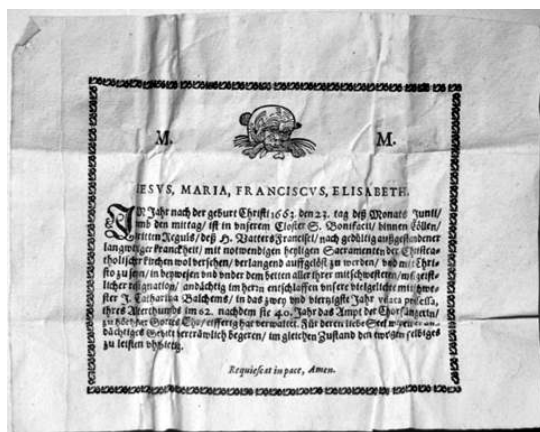 M. M.
IESVS, MARIA, FRANCISCVS, ELISABETH.
IM Jahr nach der geburt Christi 1663. den 23. tag deß Monats Junii/
umb den mittag/ ist in unserem Closter S. Bonifacii/ binnen Cöllen/
dritten Reguls/ deß H. Vatters Francisci/ nach gedültig außgestandener
langwiriger Kranckheit/ mit notwendigen heyligen Sacramenten der Christca-
tholischer Kirchen wol versehen/ verlangend auffgelöst zu werden/ und mit Chri-
sto zu seyn/ in beywesen und under dem betten aller ihrer mitschwesteren/ mit geist-
licher resignation/ andächtig im herrn entschlaffen unsere vielgeliebte mitschwe-
ster J. Catharina Balchems/ in das zwey und vierzigste Jahr professa,
ihres Alterthumbs im 62. nachdem sie 40. Jahr das Ampt der Chorsängerin/
zu Gottes Ehr/ eifferig hat verwaltet. Für deren liebe Seel wir an-
dächtiges Gebett vertrawlich begeren/ im gleichen Zustand den ewrigen selbiges
zu leisten
Requiescat in pace, Amen.